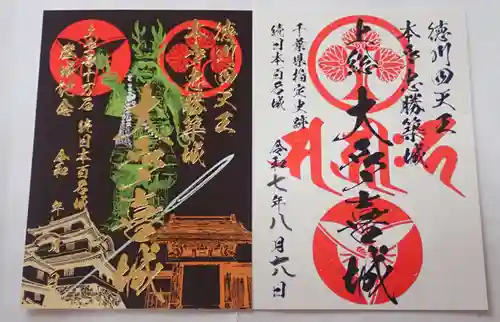 徳川四天王
本多忠勝築城
大多喜城
上総十万石
続日本百名城
登城記念
令和 年 月 日
徳川四天王
本多忠勝築城
上総 大多喜城
千葉県指定史跡
続日本百名城
令和七年八月十八日